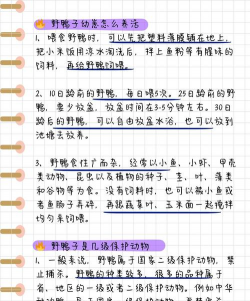 野鸭子幼崽怎么养活
1、喂食野鸭时，可以先把塑料薄膜铺在地上，
把小米饭用凉水淘洗后，拌上鱼粉等有腥味的
饲料，再给野鸭饲喂。
2、10日龄前的野鸭，每日喂5次。25日龄前的野
鸭，要少放盆，放盆时间在3-5分钟左右。30日
龄后的野鸭，可以自由放盆水浴，也可以放到
池塘去放养。
3、野鸭食性广而杂，经常以小鱼、小虾、甲壳
类动物、昆虫以及植物的种子、茎、叶、藻类
和谷物等为食。没有饲料时，也可以稀小鱼或
者鱼肠子弄碎，再跟蔬菜叶、玉米面一起搅拌
均匀来饲喂。
野鸭子是几级保护动物
1、一般来说，野鸭属于国家二级保护动物，禁
止捕杀。野鸭的种类较多，很多的品种属于
省、地区的一级或者二级保护动物。例如中华